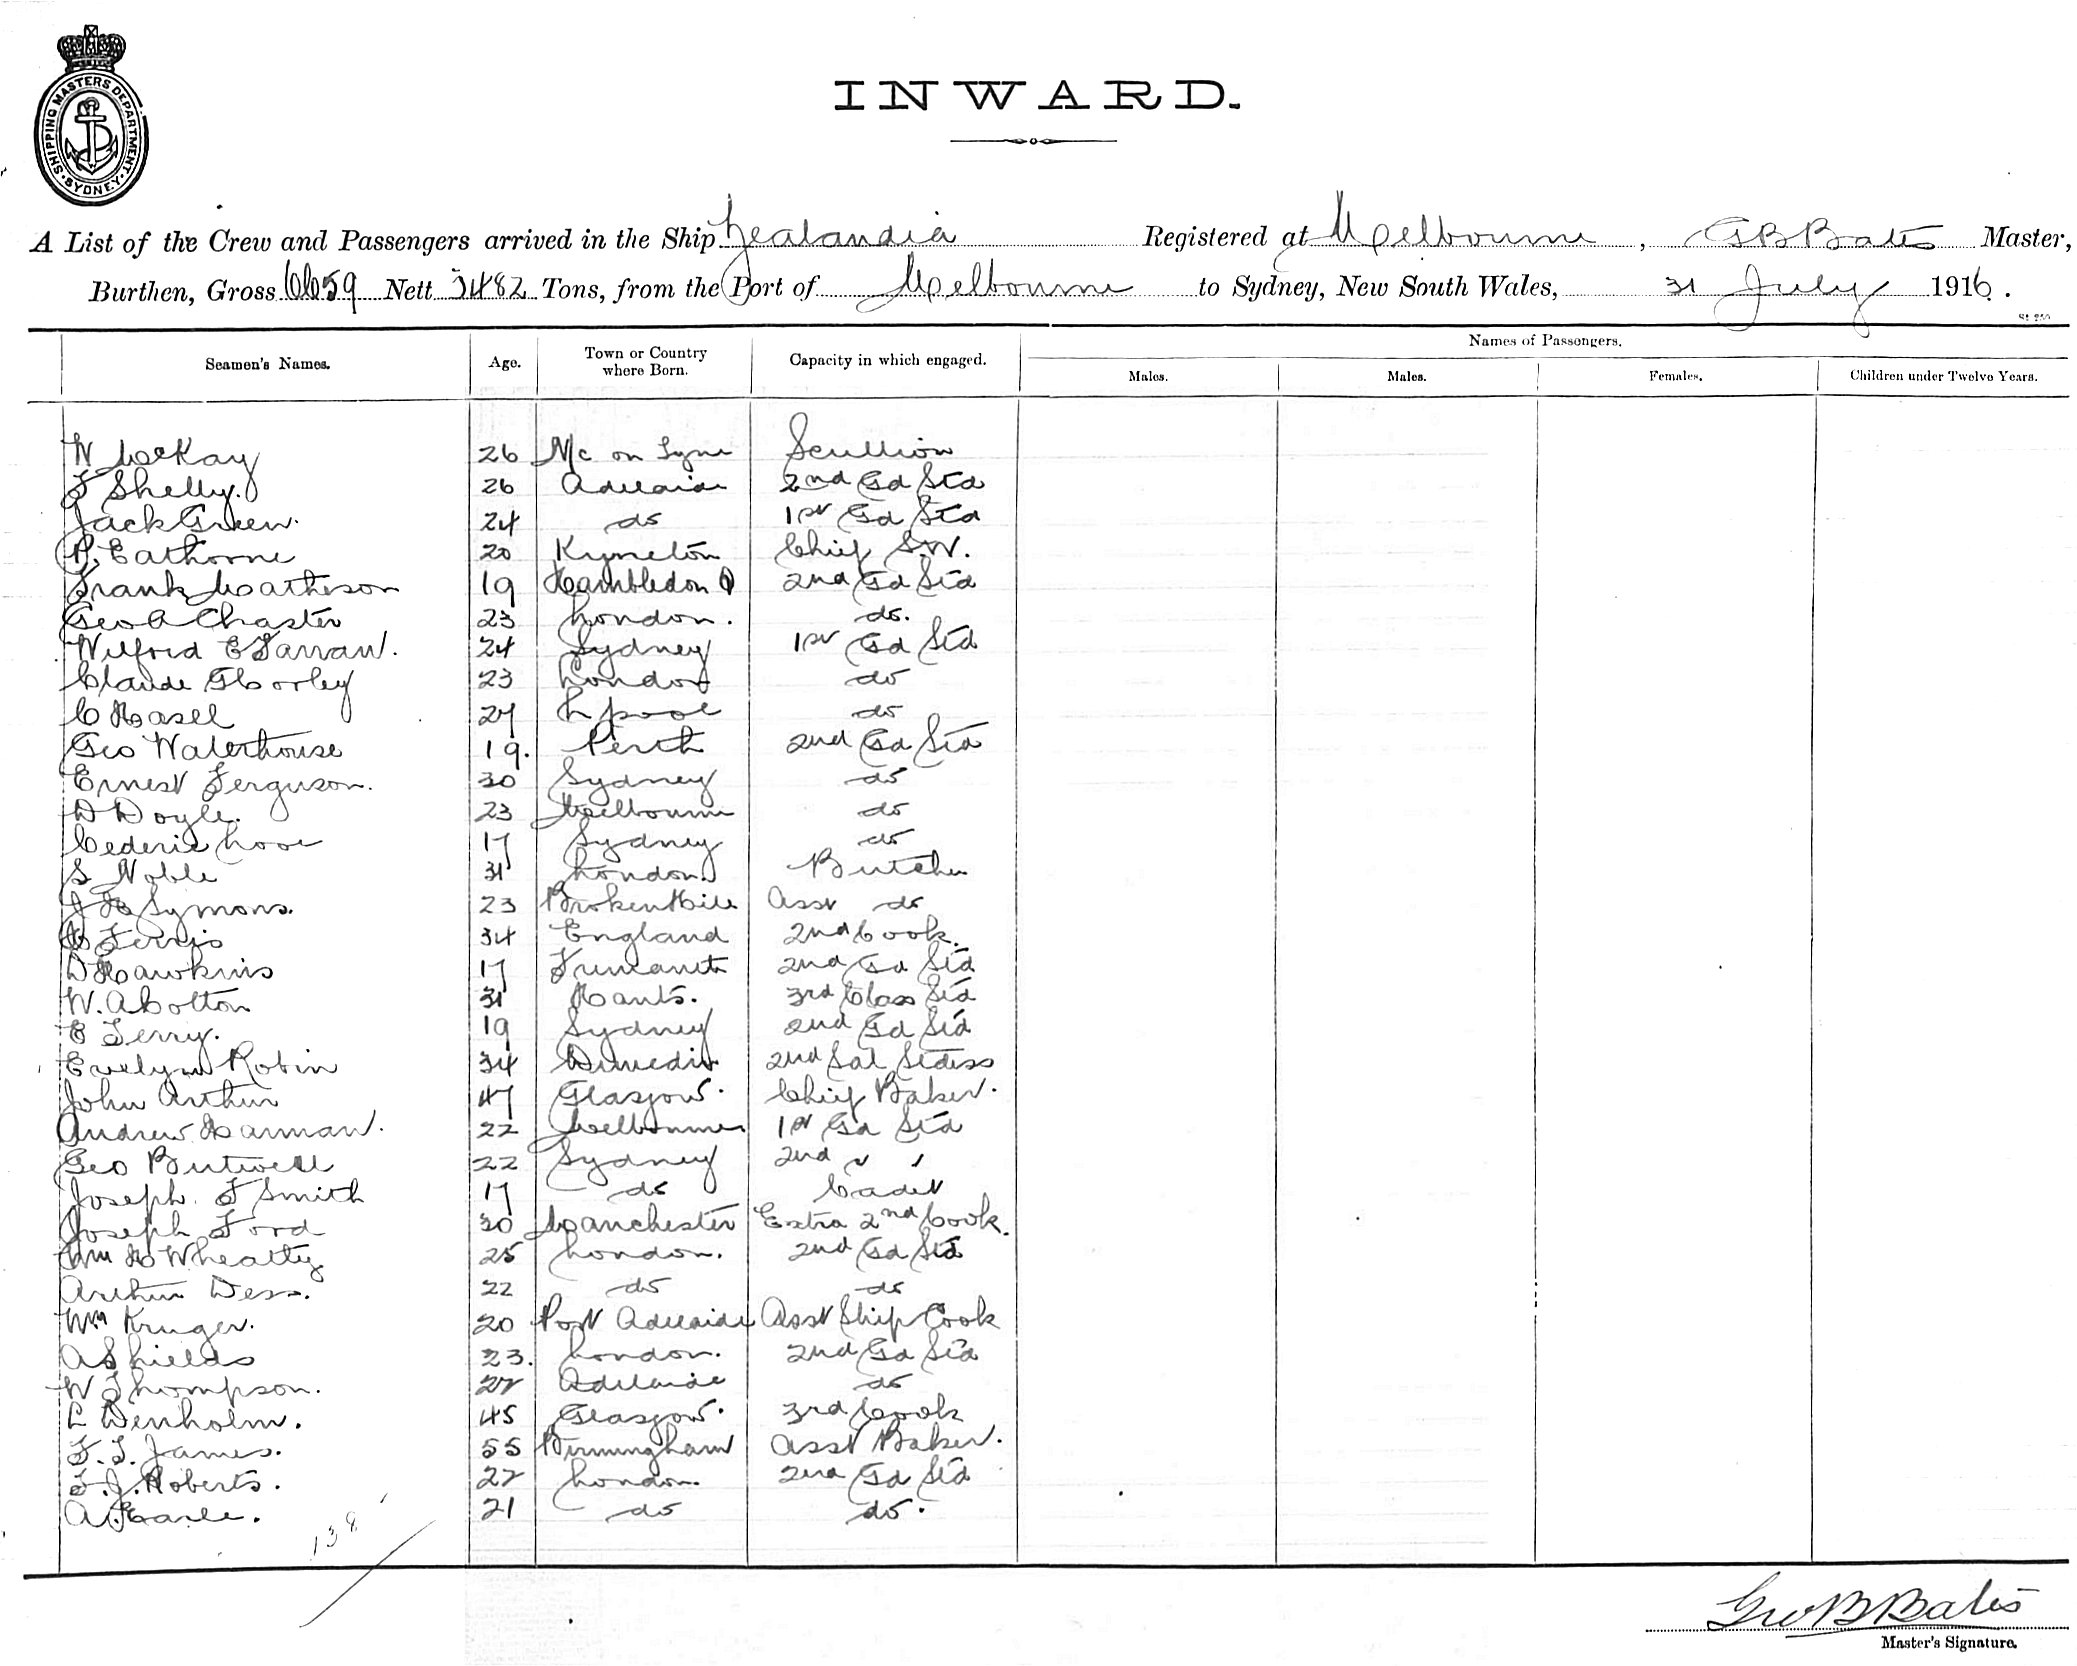 SHIPPING MASTERS DEPARTMENT. SYDNEY.
INWARD.
A List of the Crew and Passengers arrived in the Ship Zealandia Registered at Melbourne, G B Bates Master,
Burthen, Gross 6659 Nett 3482 Tons, from the Port of Melbourne to Sydney, New South Wales, 31 July 1916.
Names of Passengers.
Seamen's Names. Age. Town or Country where Born. Capacity in which engaged. Males. Males. Females. Children under Twelve Years.
W McKay 26 N/c on Tyne Scullion
F Shelly. 26 Adelaide 2nd Gd Std
Jack Green. 24 do 1st Gd Std
P. Eathorne 20 Kyneton Chief S.W.
Frank Matheson 19 Hambledon 2nd Gd Std
Geo A Chaster 23 London. do.
Wilford E Farran. 24 Sydney 1st Gd Std
Claude G Morley 23 London do
C Hasell 27 L'pool do
Geo Waterhouse 19. Perth 2nd Gd Std
Ernest Ferguson. 30 Sydney do
D Doyle. 23 Melbourne do
Cederic Love 17 Sydney do
S Noble 31 London. Butcher
J H Symons. 23 Broken Hill Asst do
Ferris 34 England 2nd Cook.
D Hawkins 17 Fremantle 2nd Gd Std
W. A Colton 31 Hants. 3rd Class Std
E Terry. 19 Sydney 2nd Gd Std
Evelyn Robin 34 Dunedin 2nd Sal Stdess
John Arthur 47 Glasgow. Chief Baker.
Andrew Harman. 22 Melbourne 1st Gd Std
Geo Butwell 22 Sydney 2nd " "
Joseph F Smith 17 do Cadet
Joseph Ford 30 Manchester Extra 2nd Cook.
Wm H Wheatly 25 London. 2nd Gd Std
Arthur Dess. 22 do do
Wm Kruger. 20 Port Adelaide Asst Ship Cook
A Shields 23. London. 2nd Gd Std
W Thompson. 22 Adelaide do
L Denholm. 45 Glasgow. 3rd Cook
F. T. James. 55 Birmingham Asst Baker.
F. J. Roberts. 22 London. 2nd Gd Std
A. Earle. 21 do do.
138
Geo B Bates
Master's Signature.